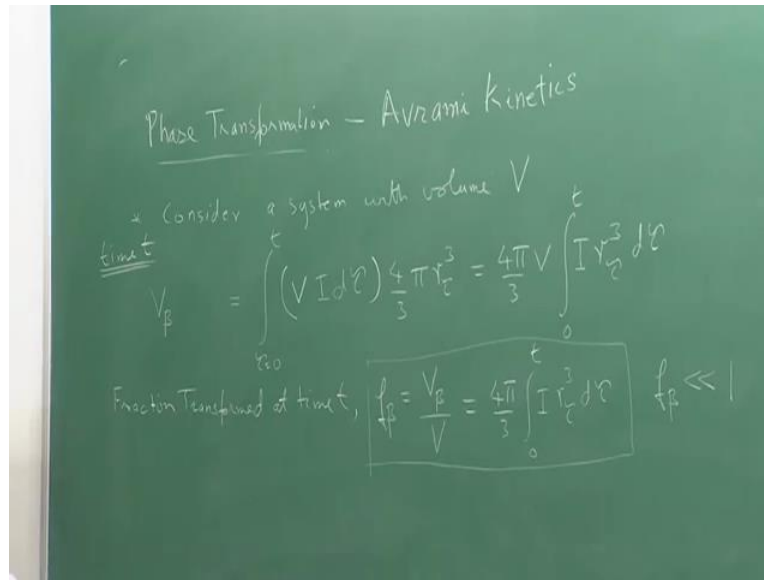 Phase Transformation – Avrami Kinetics
* Consider a system with volume V
time t
V_β = ∫_{τ=0}^{t} (V I dτ) 4/3 π r_τ^3 = 4π/3 V ∫_0^t I r_τ^3 dτ
Fraction Transformed at time t, f_β = V_β/V = 4π/3 ∫_0^t I r_τ^3 dτ f_β ≪ 1